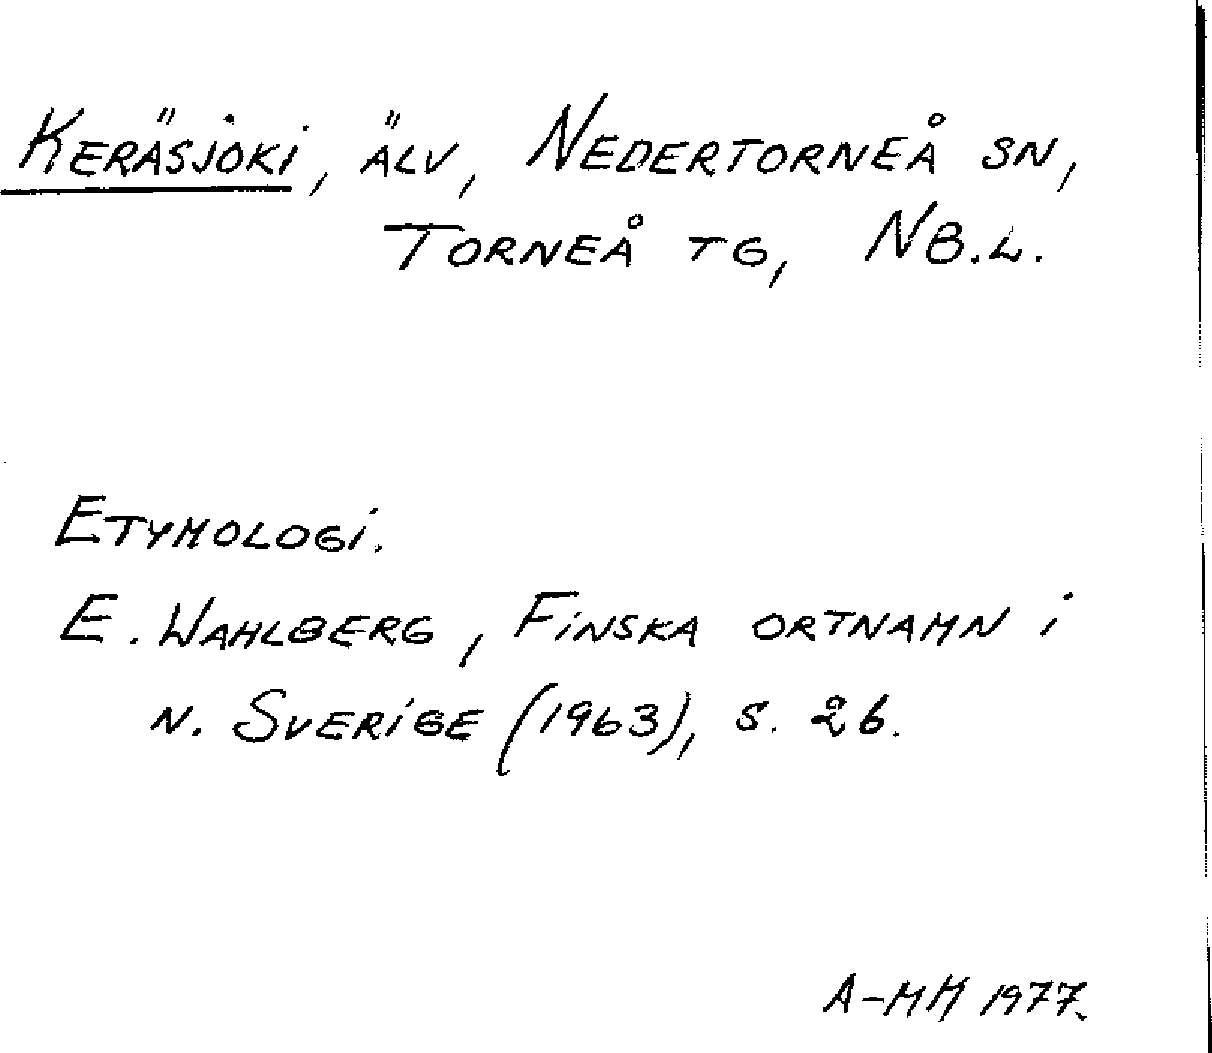 Keräsjoki, älv, Nedertorneå sn,
Torneå tg, Nb.l.
Etymologi.
E. Wahlberg, Finska ortnamn i
n. Sverige (1963), s. 26.
A-MH 1977.